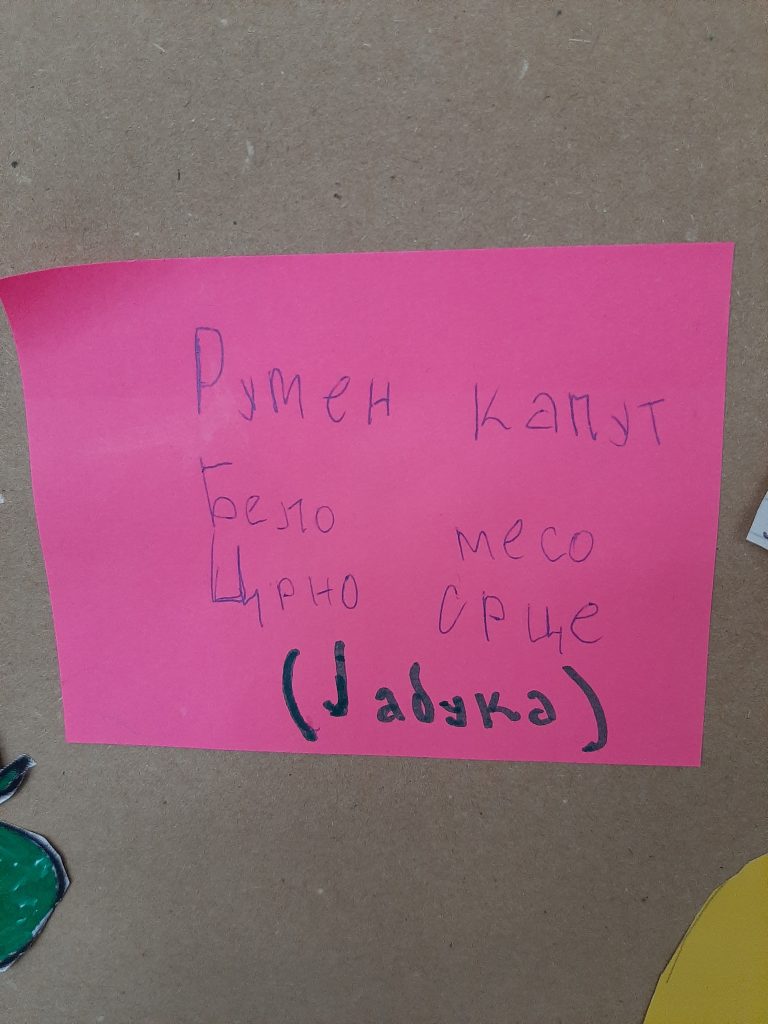 Румен капут
Бело месо
Црно срце
(Јабука)